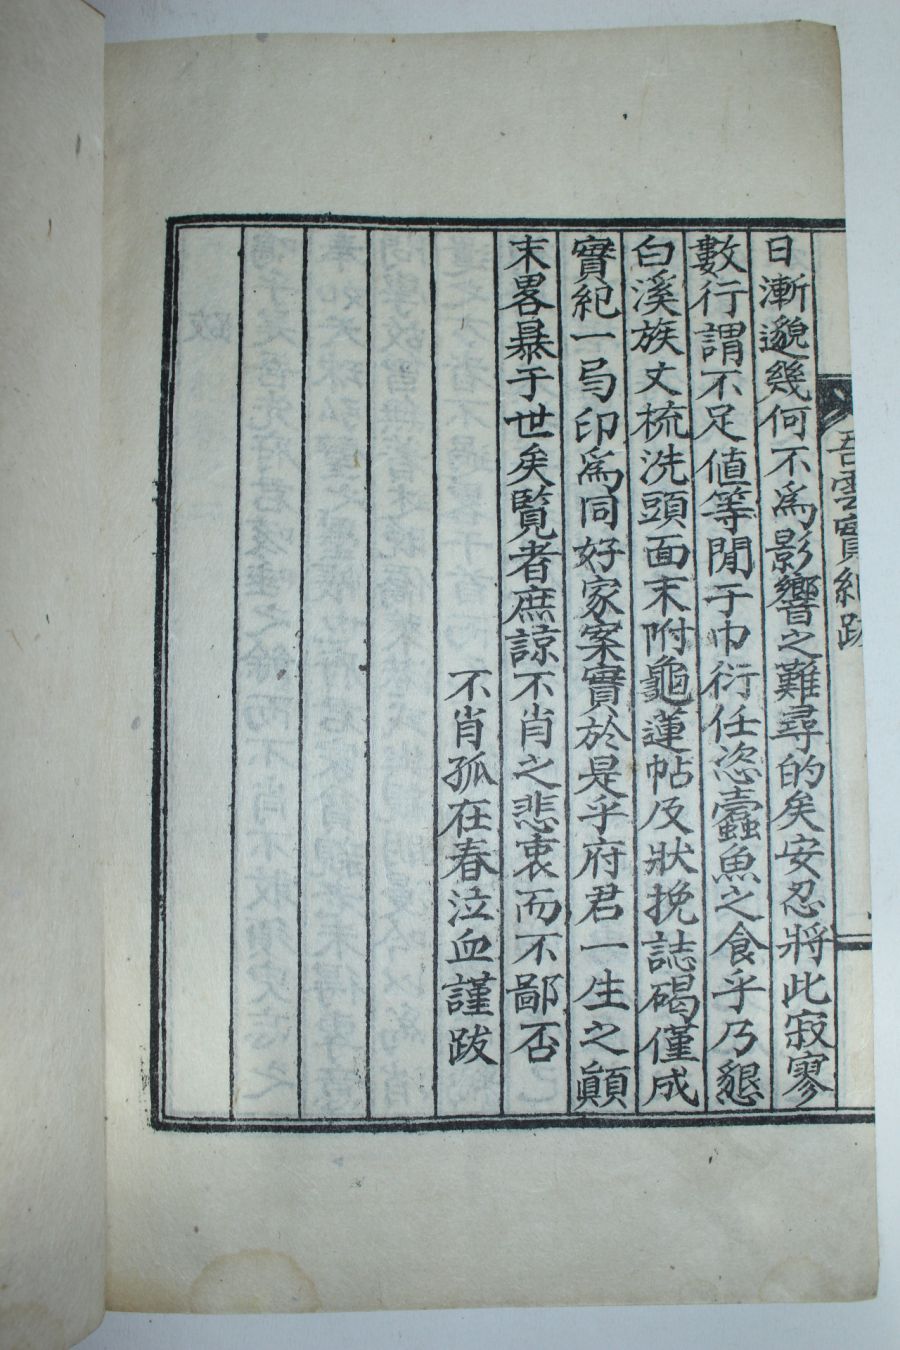 吾雲實紀跋
日漸邈幾何不爲影響之難尋的矣安忍將此寂寥
數行謂不足値等閒于巾衍任恣蠧魚之食乎乃懇
白溪族丈梳洗頭面末附龜蓮帖及狀挽誌碣僅成
實紀一弓印爲同好家案實於是乎府君一生之顚
末畧暴于世矣覽者庶諒不肖之悲衷而不鄙否
不肖孤在春泣血謹跋